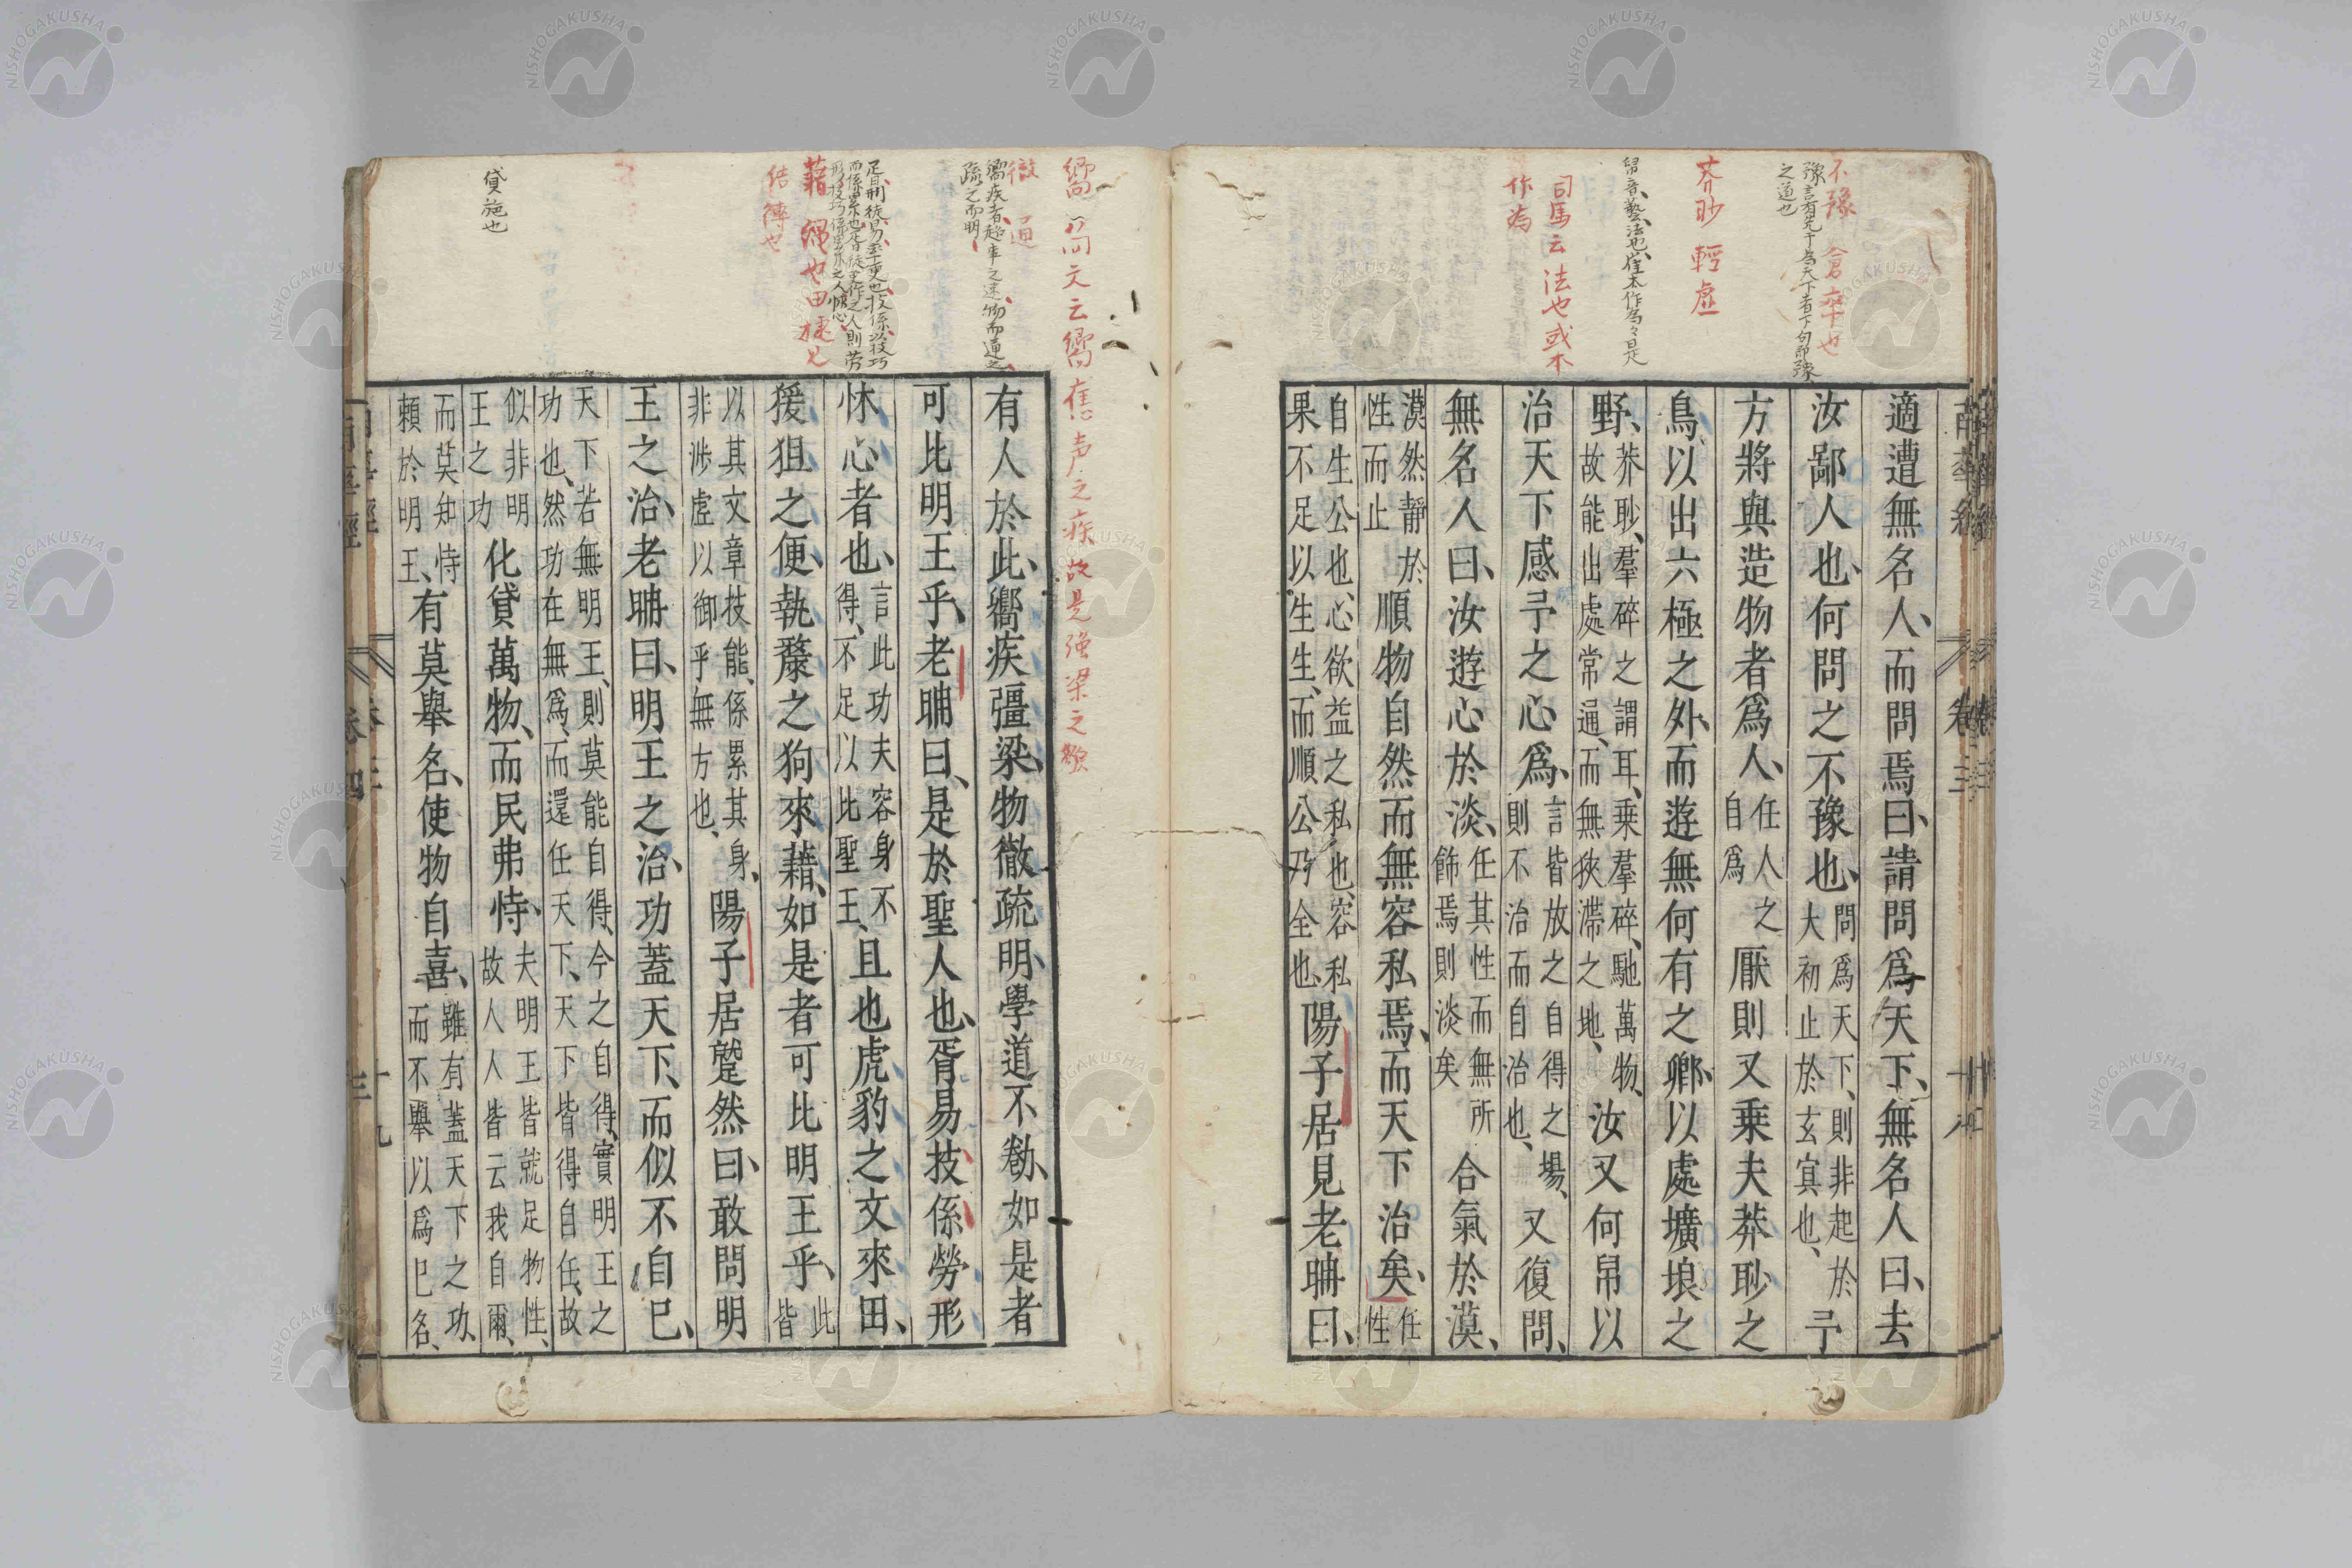 不豫 倉卒也
豫言有先于為天下者下句即豫
之道也
莽眇 輕虛
帠音藝法也崔本作為々日是
司馬云法也或木
作為
適遭無名人、而問焉曰、請問爲天下、無名人曰、去
汝鄙人也、何問之不豫也、問爲天下、則非起於大初止於玄冥也、予
方將與造物者爲人、任人之自爲厭則又乗夫莽眇之
鳥、以出六極之外、而遊無何有之鄉、以處壙埌之
野、莽眇、羣碎之謂耳、乗羣碎、馳萬物、故能出處常通、而無狹滯之地、汝又何帠以
治天下感予之心爲、言皆放之自得之場、則不治而自治也、又復問、
無名人曰、汝遊心於淡、任其性而無所飾焉則淡矣合氣於漠、
漠然靜於性而止順物自然而無容私焉、而天下治矣、任性
自生公也、心欲益之私也、容私果不足以生生、而順公乃全也、陽子居見老聃曰、
嚮 文云嚮 声之疾故是強梁之
徹 通
嚮疾者趍事之速物而通之
疏之而明
有人於此、嚮疾彊梁、物徹疏明、學道不勌、如是者
可比明王乎、老聃曰、是於聖人也、胥易技係勞形
怵心者也、言此功夫容身不得、不足以比聖王、且也虎豹之文來田、
猨狙之便、執斄之狗來藉、如是者可比明王乎、此皆
以其文章技能、係累其身、非涉虛以御乎無方也、陽子居蹵然曰、敢問明
王之治、老聃曰、明王之治、功蓋天下、而似不自已、
天下若無明王、則莫能自得、今之自得、實明王之功也、然功在無爲、而還任天下、天下皆得自任、故
似非明王之功化貸萬物、而民弗恃、夫明王皆就足物性、故人人皆云我自爾、
而莫知恃賴於明王、有莫舉名、使物自喜、雖有蓋天下之功、而不舉以爲已名、
藉 繩也
結縛也
貸施也
卷三
NISHOGAKUSHA